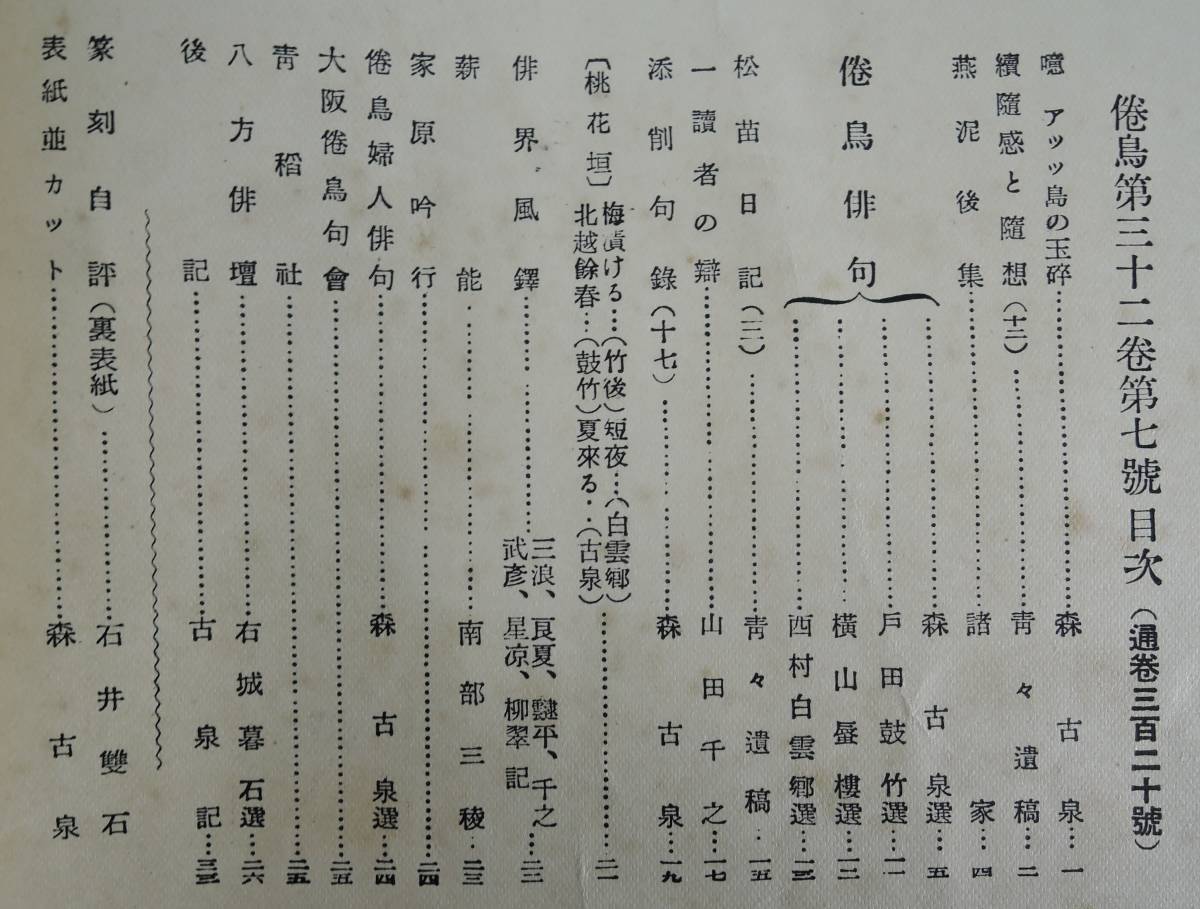 倦鳥第三十二卷第七號目次（通卷三百二十號）
噫 アッツ島の玉碎……森古泉…一
續隨感と隨想（十二）……青々遺稿…二
燕泥後集……諸家…四
倦鳥俳句
……森古泉選…五
……戶田鼓竹選…一一
……橫山蜃樓選…一二
……西村白雲鄕選…一三
松苗日記（二）……靑々遺稿…一五
一讀者の辯……山田千之…一七
添削句錄（十七）……森古泉…一九
〔桃花垣〕梅漬ける…（竹後）短夜…（白雲鄕）
北越餘春…（鼓竹）夏來る…（古泉）……二一
俳界風鐸……三浪、良夏、平、千之
武彥、星凉、柳翠 記…二三
薪能……南部三稜…二三
家原吟行……二四
倦鳥婦人俳句……森古泉選…二四
大阪倦鳥句會……二五
靑稻社……二五
八方俳壇……右城暮石選…二六
後記……古泉記…三三
篆刻自評（裏表紙）……石井雙石
表紙並カット……森古泉